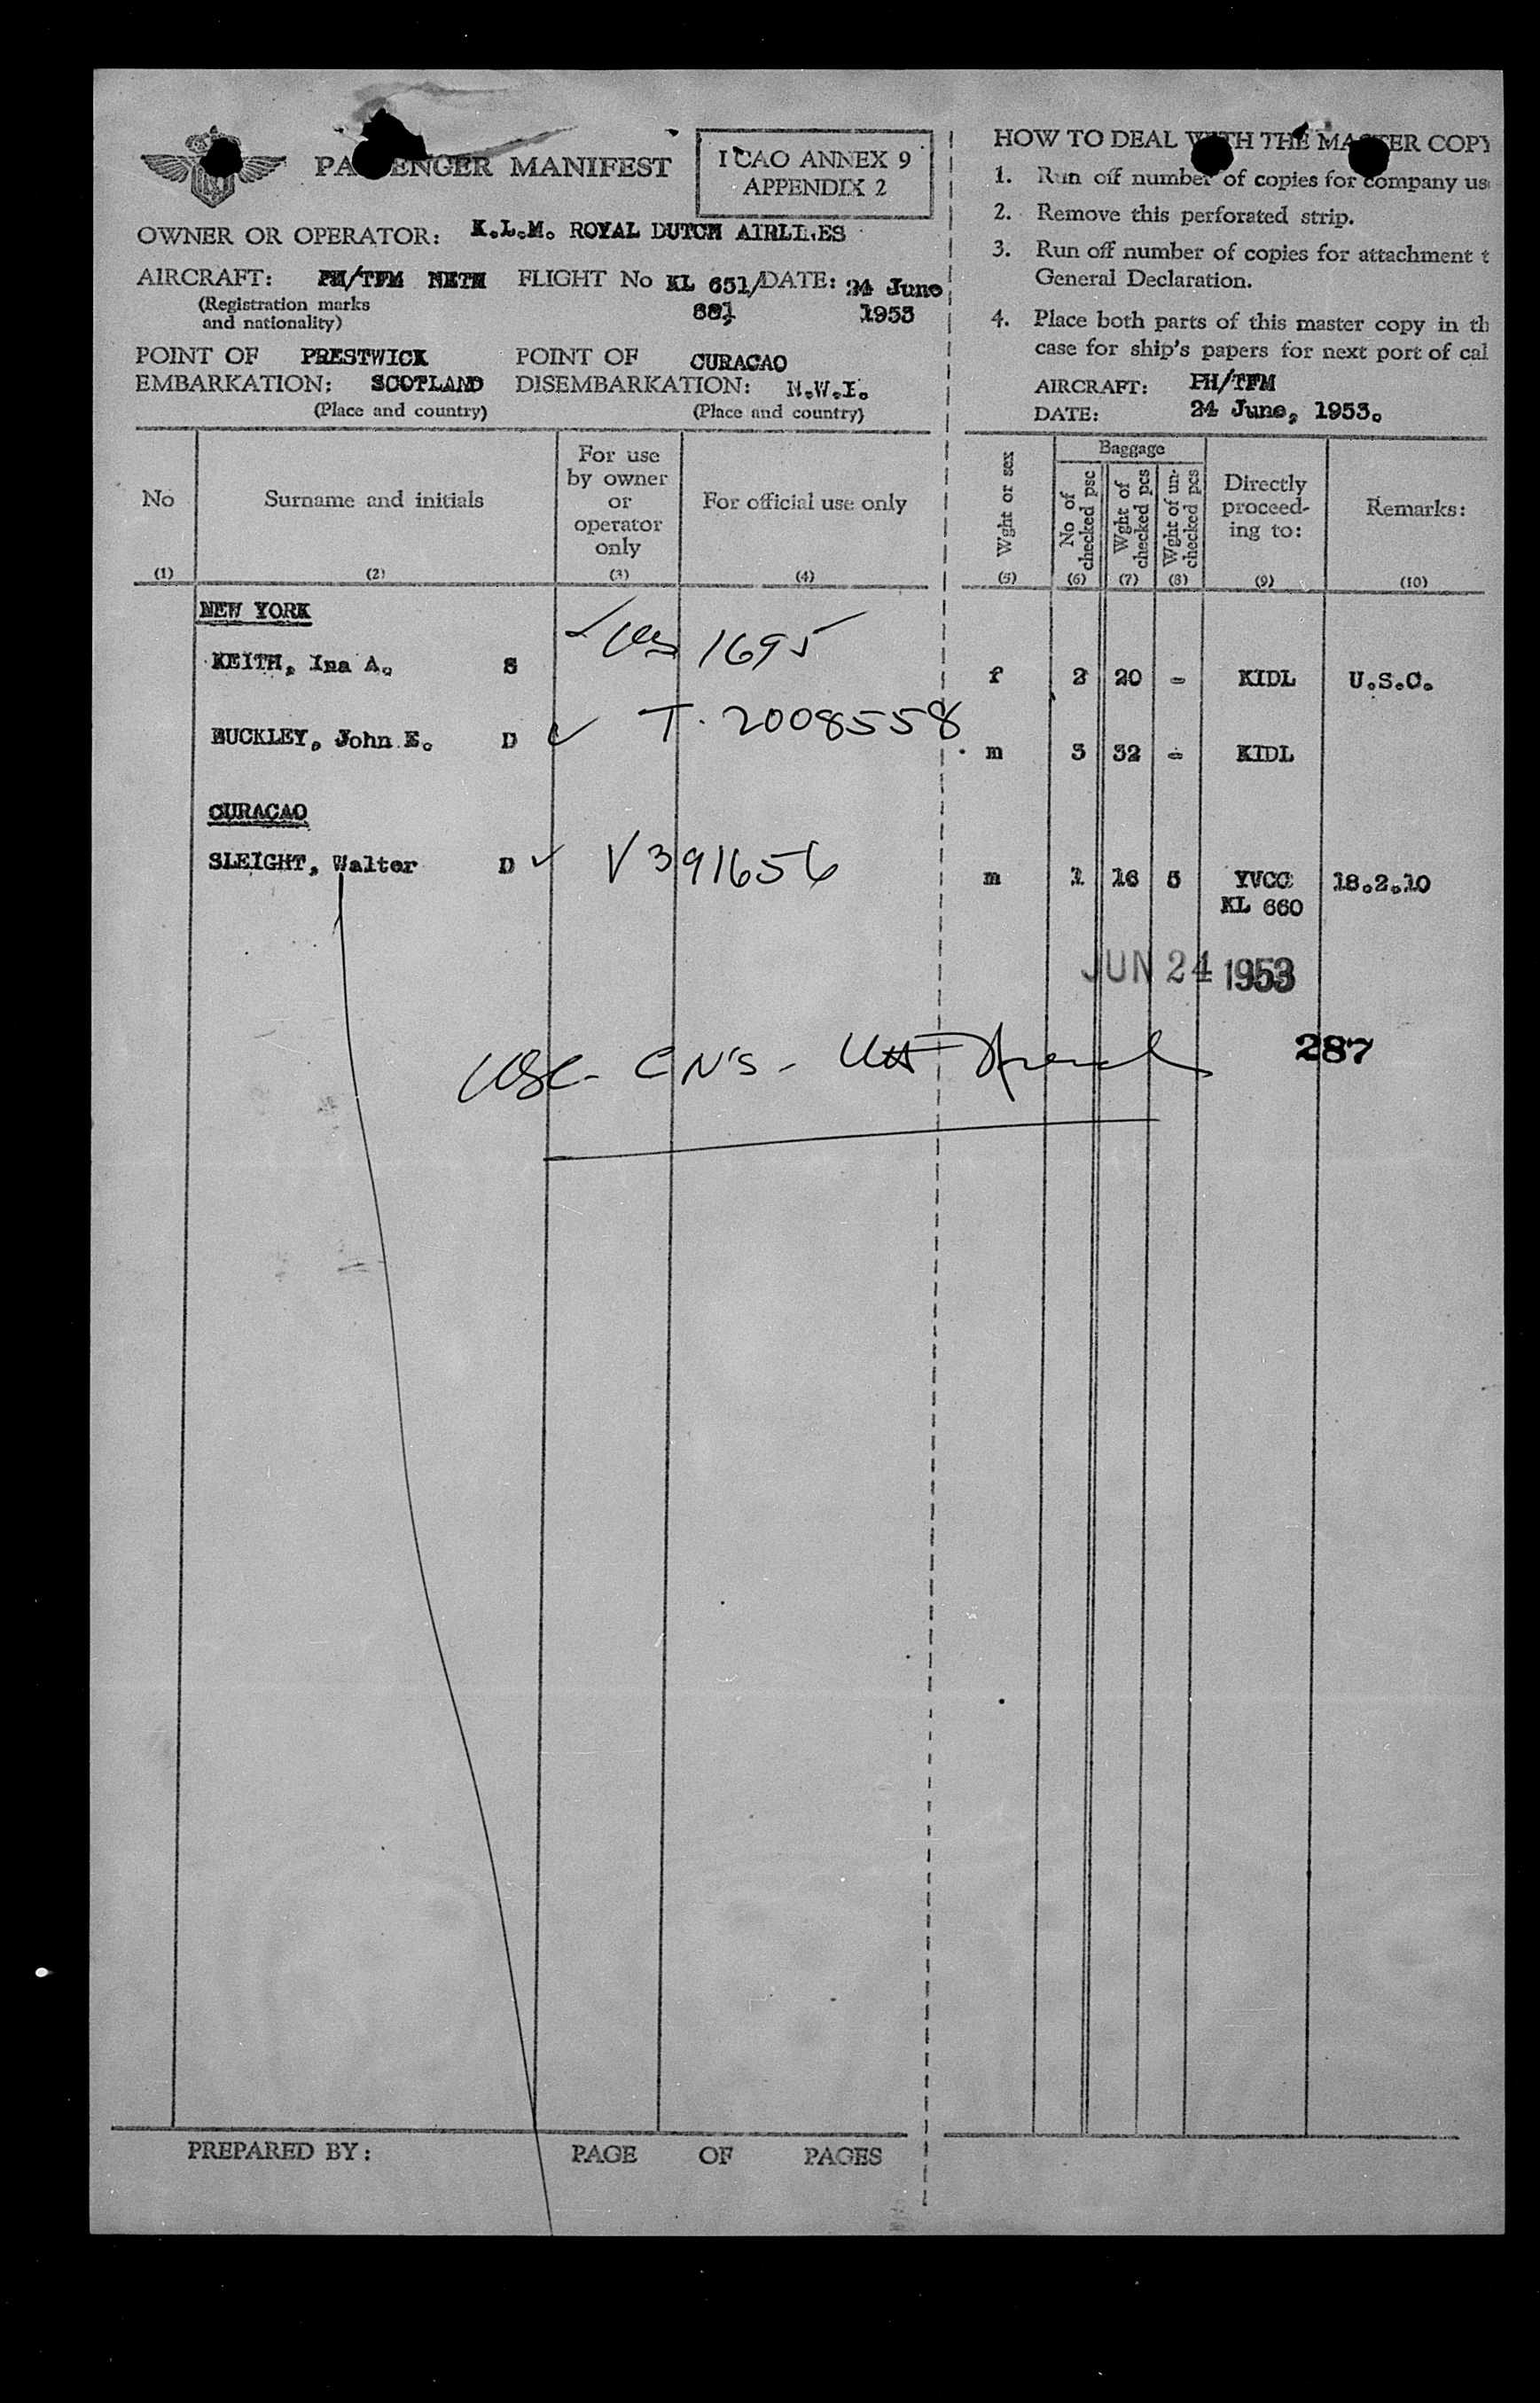 PASSENGER MANIFEST
ICAO ANNEX 9
APPENDIX 2
OWNER OR OPERATOR: K.L.M. ROYAL DUTCH AIRLINES
AIRCRAFT: PH/TFM NETH FLIGHT No KL 651/ DATE: 24 June
(Registration marks
and nationality)
1953
POINT OF PRESTWICK POINT OF CURACAO
EMBARKATION: SCOTLAND DISEMBARKATION: N.W.I.
(Place and country) (Place and country)
No
Surname and initials
For use
by owner
or
operator
only
For official use only
(1) (2) (3) (4)
NEW YORK
KEITH, Ina A. S 1695
BUCKLEY, John E. D T. 2008558
CURACAO
SLEIGHT, Walter D V391656
USC - CN'S -
PREPARED BY: PAGE OF PAGES
HOW TO DEAL WITH THE MASTER COPY
1. Run off number of copies for company us
2. Remove this perforated strip.
3. Run off number of copies for attachment t
General Declaration.
4. Place both parts of this master copy in th
case for ship's papers for next port of cal
AIRCRAFT: PH/TFM
DATE: 24 June, 1953.
Wght or sex
Baggage
No of
checked psc
Wght of
checked pcs
Wght of un-
checked pcs
Directly
proceed-
ing to:
Remarks:
(5) (6) (7) (8) (9) (10)
f 2 20 - KIDL U.S.C.
m 3 32 - KIDL
m 1 16 5 YVCC 18.2.10
KL 660
JUN 24 1953
287